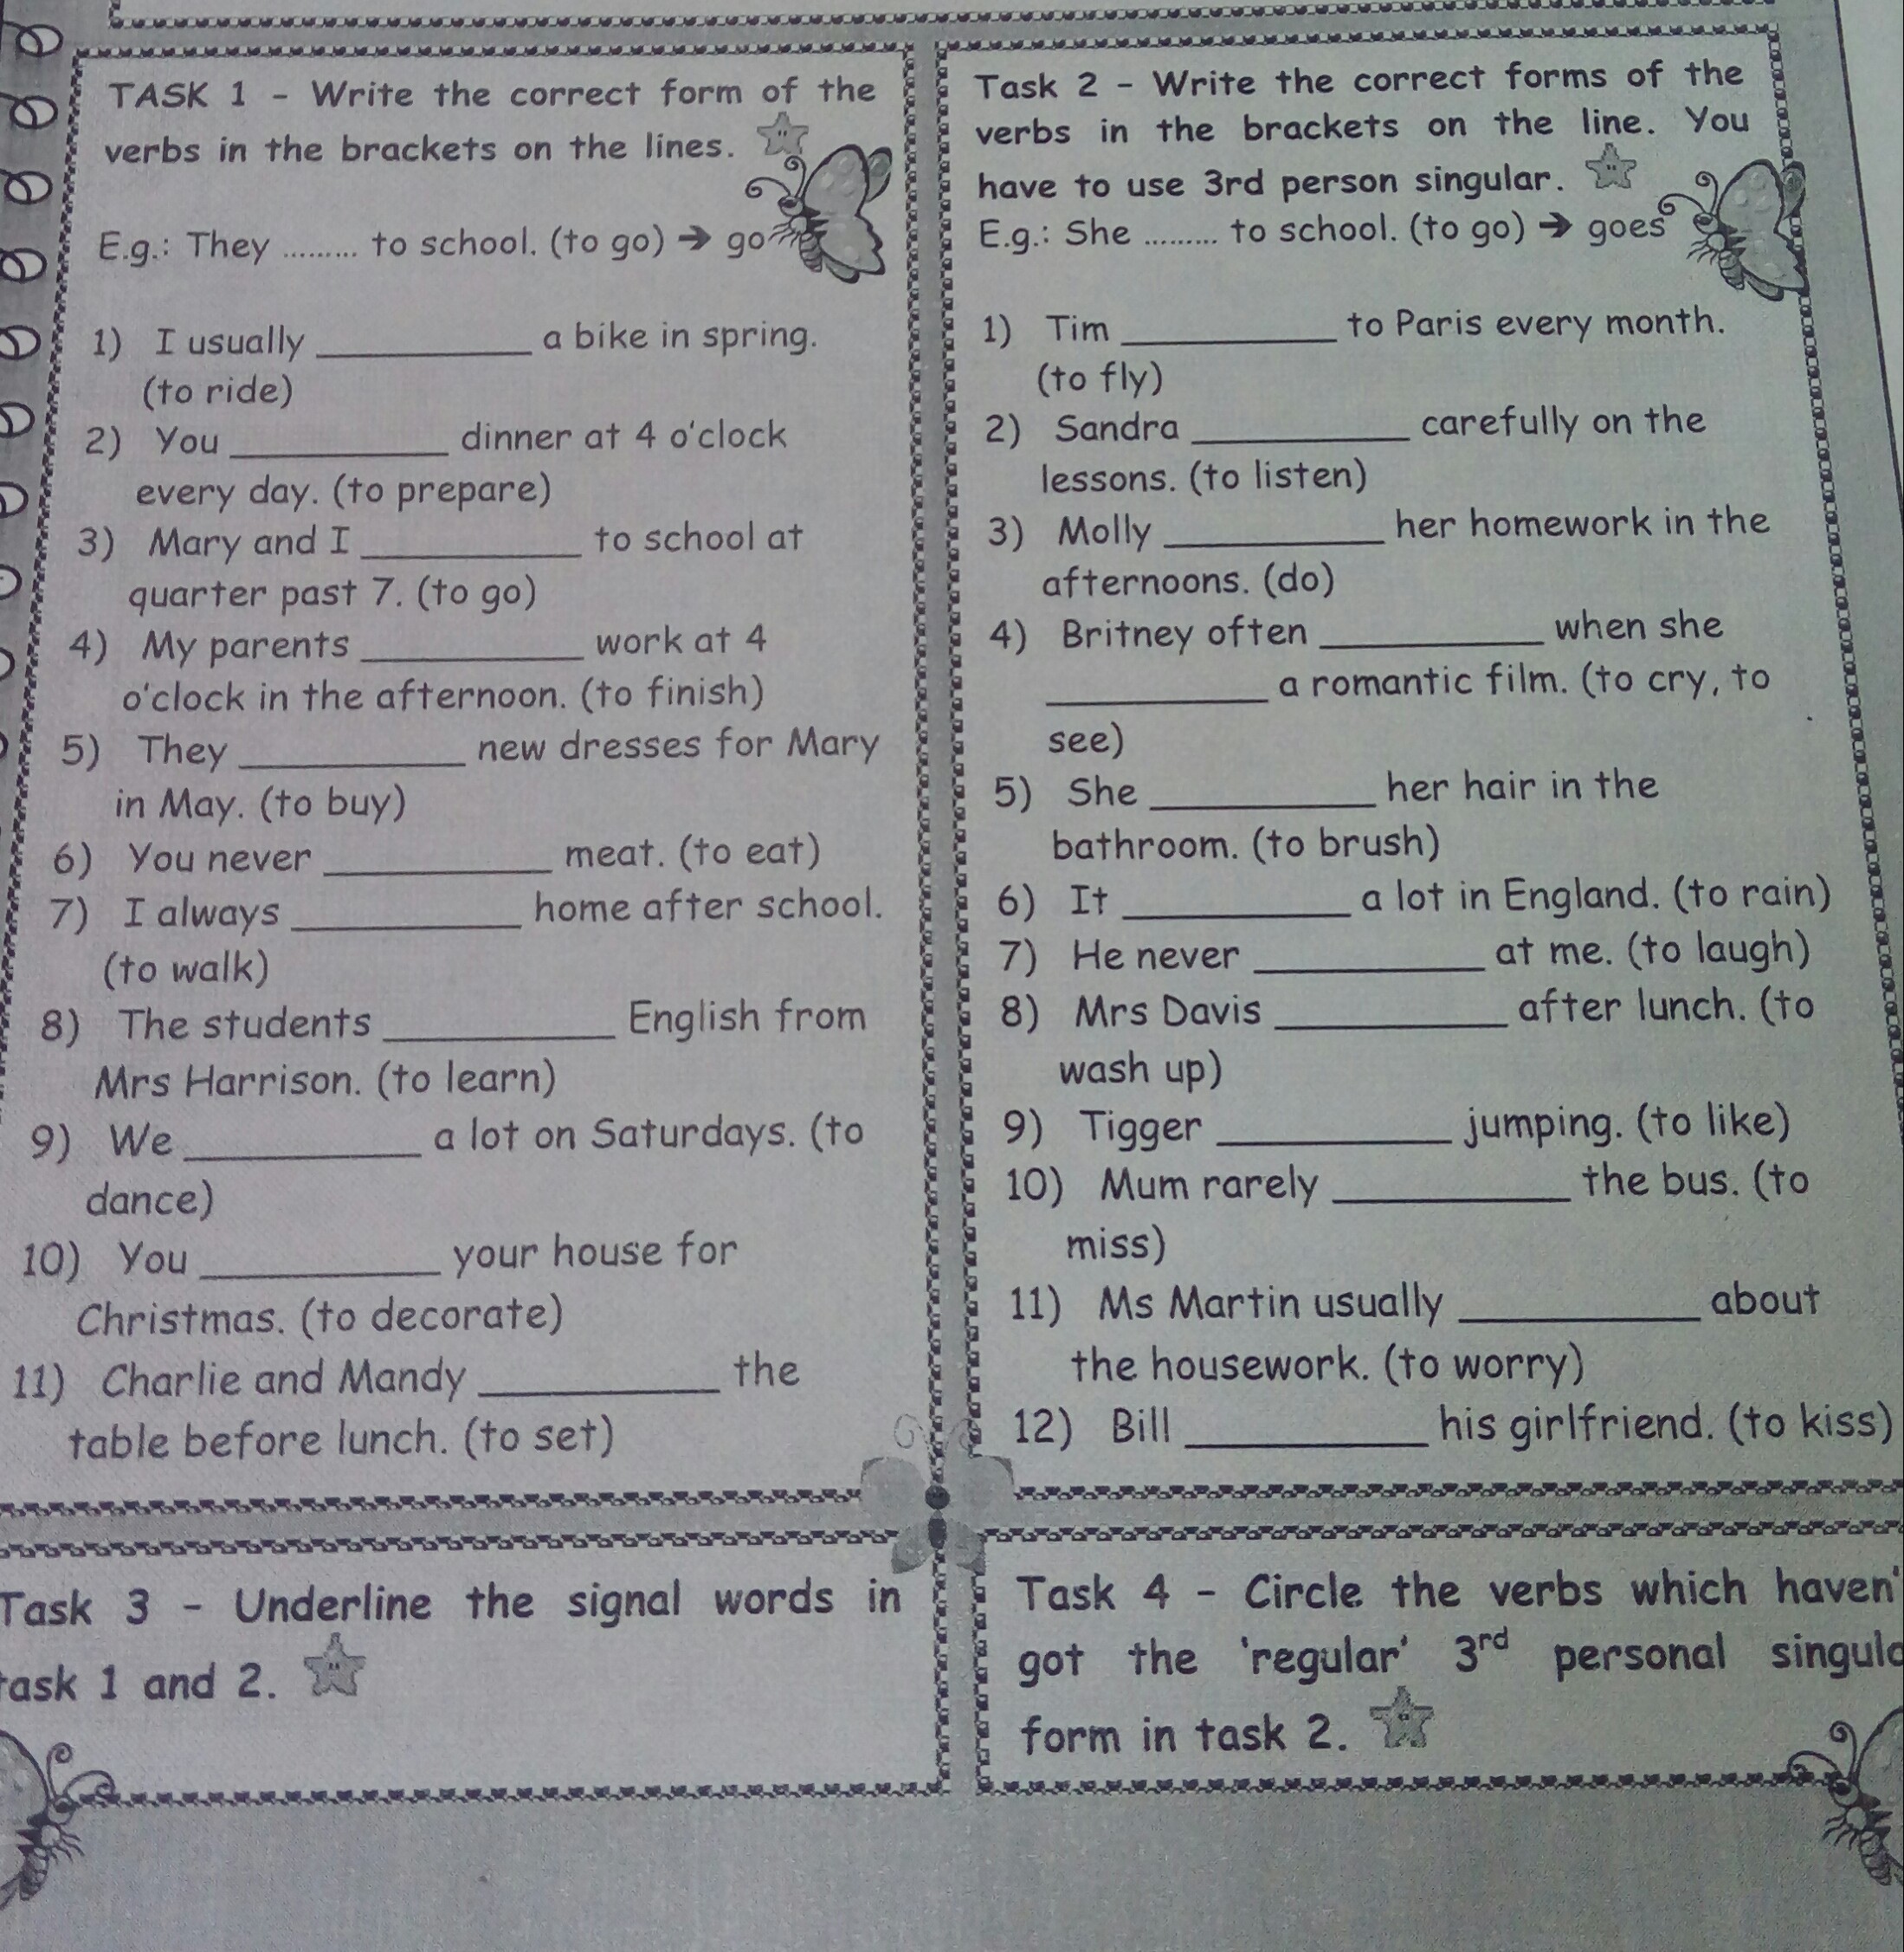 TASK 1 - Write the correct form of the
verbs in the brackets on the lines.
E.g.: They ......... to school. (to go) ➔ go
1) I usually __________ a bike in spring.
(to ride)
2) You __________ dinner at 4 o'clock
every day. (to prepare)
3) Mary and I __________ to school at
quarter past 7. (to go)
4) My parents __________ work at 4
o'clock in the afternoon. (to finish)
5) They __________ new dresses for Mary
in May. (to buy)
6) You never __________ meat. (to eat)
7) I always __________ home after school.
(to walk)
8) The students __________ English from
Mrs Harrison. (to learn)
9) We __________ a lot on Saturdays. (to
dance)
10) You __________ your house for
Christmas. (to decorate)
11) Charlie and Mandy __________ the
table before lunch. (to set)
Task 2 - Write the correct forms of the
verbs in the brackets on the line. You
have to use 3rd person singular.
E.g.: She ......... to school. (to go) ➔ goes
1) Tim __________ to Paris every month.
(to fly)
2) Sandra __________ carefully on the
lessons. (to listen)
3) Molly __________ her homework in the
afternoons. (do)
4) Britney often __________ when she
__________ a romantic film. (to cry, to
see)
5) She __________ her hair in the
bathroom. (to brush)
6) It __________ a lot in England. (to rain)
7) He never __________ at me. (to laugh)
8) Mrs Davis __________ after lunch. (to
wash up)
9) Tigger __________ jumping. (to like)
10) Mum rarely __________ the bus. (to
miss)
11) Ms Martin usually __________ about
the housework. (to worry)
12) Bill __________ his girlfriend. (to kiss)
Task 3 - Underline the signal words in
task 1 and 2.
Task 4 - Circle the verbs which haven'
got the 'regular' 3rd personal singul
form in task 2.